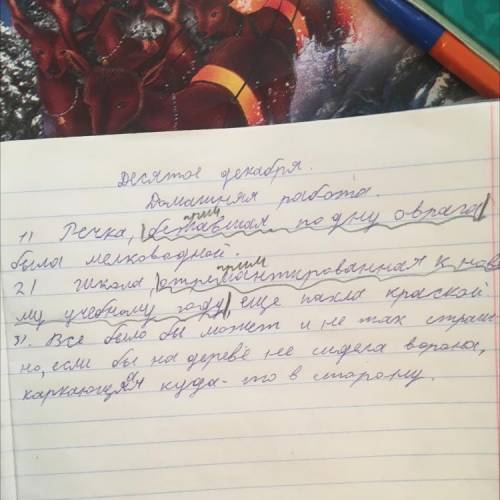 Десятое декабря.
Домашняя работа.
прич
1) Речка, |бежавшая по дну оврага|
была мелководной.
прич
2) Школа, |отремонтированная к ново
му учебному году| еще пахла краской
3). Все было бы может и не так страш
но, если бы на дереве не сидела ворона,
каркающая куда-то в сторону.